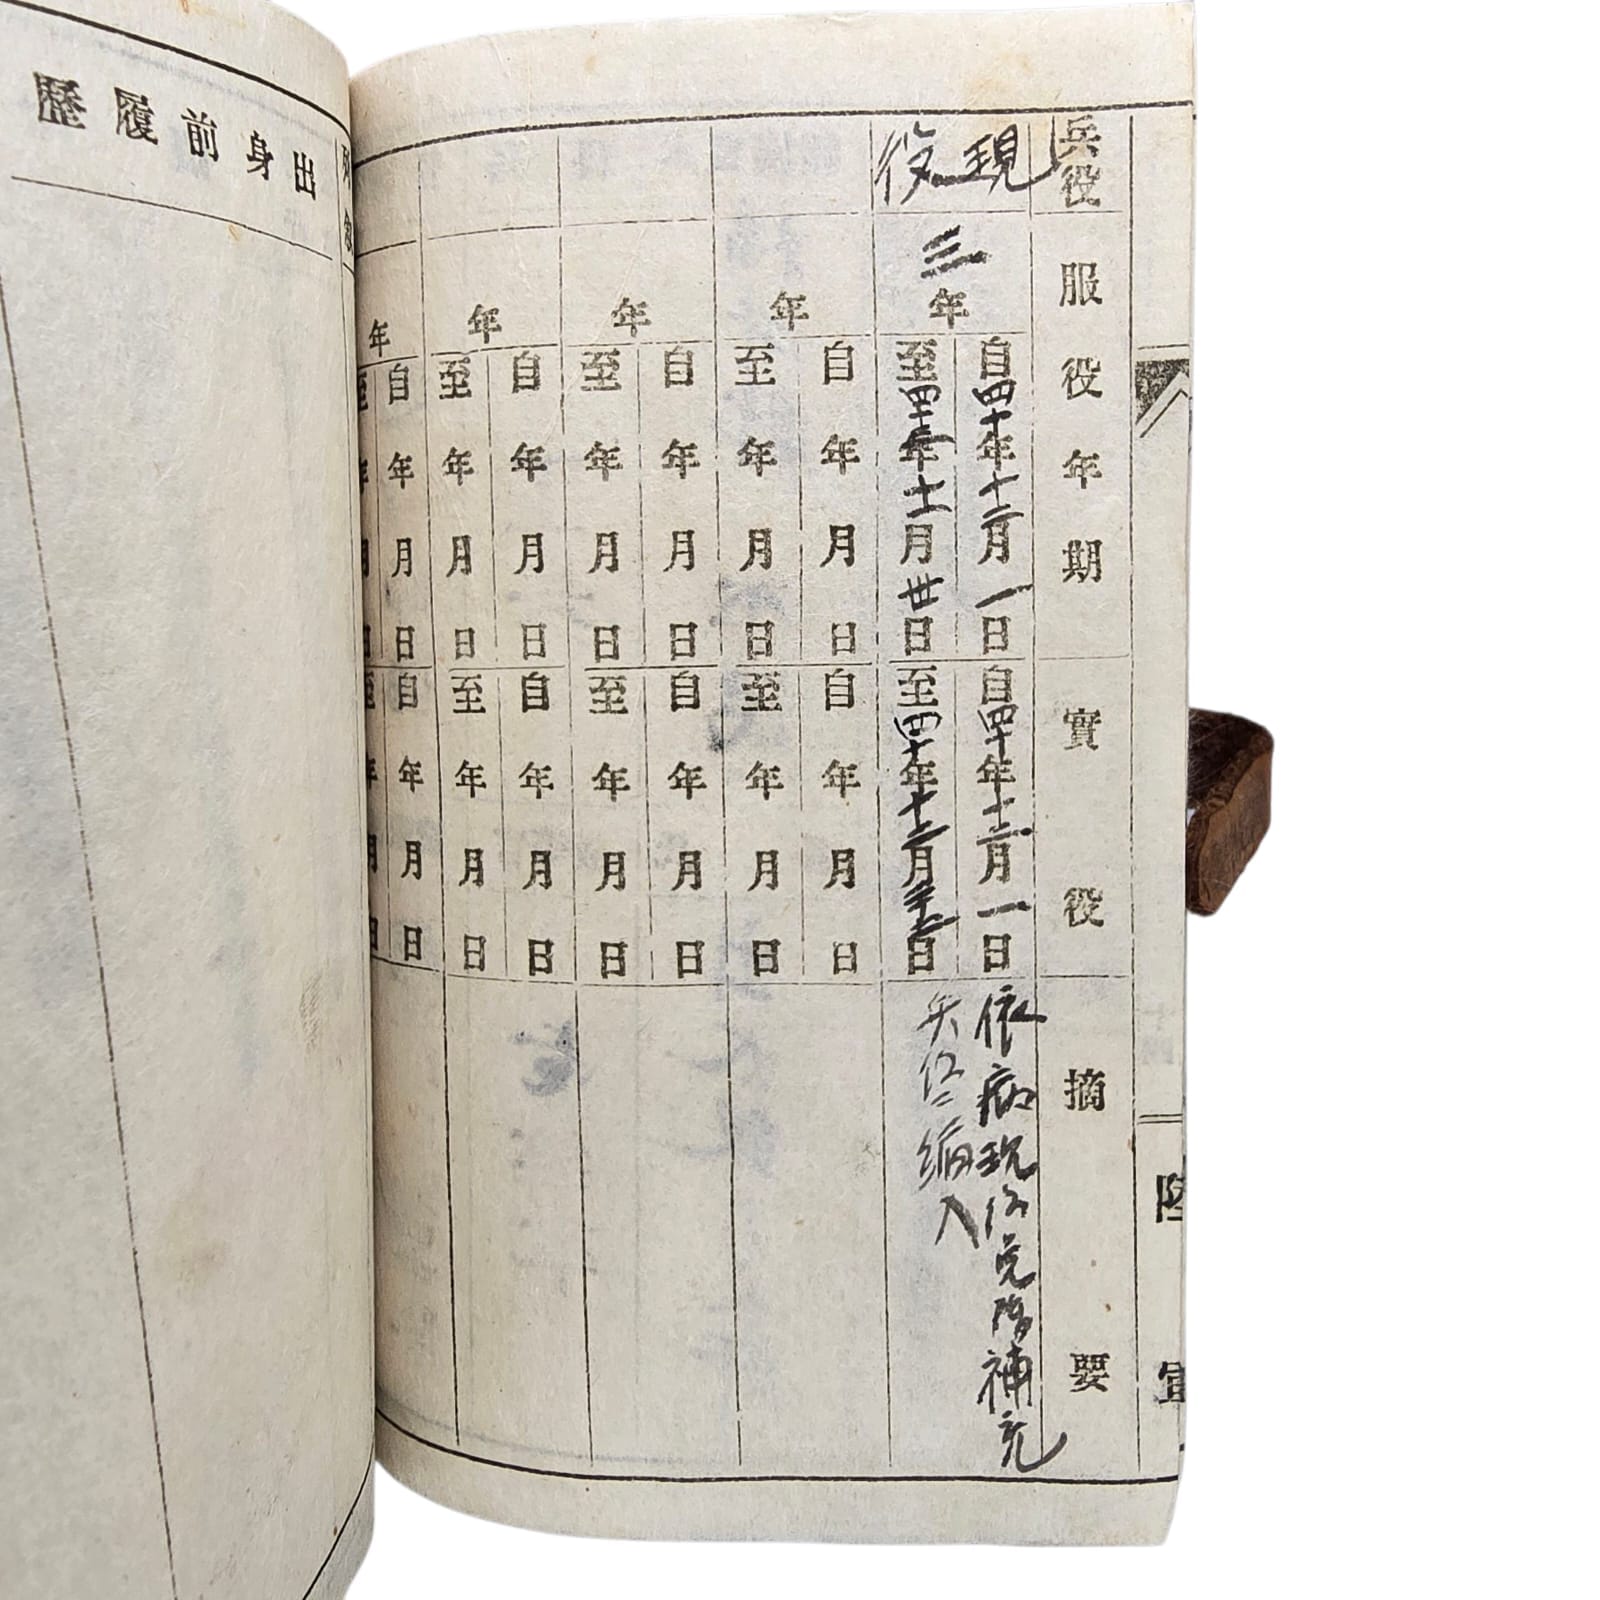 兵役
服役年期
實役
摘要
現役
三年
自四十年十二月一日
至四十三年十一月卅日
自四十年十二月一日
至四十年十二月
日
依病現役免除補充
兵役編入
年
自年月日
至年月日
自年月日
至年月日
年
自年月日
至年月日
自年月日
至年月日
年
自年月日
至年月日
自年月日
至年月日
年
自年月日
至年月日
自年月日
至年月日
出身前履歷